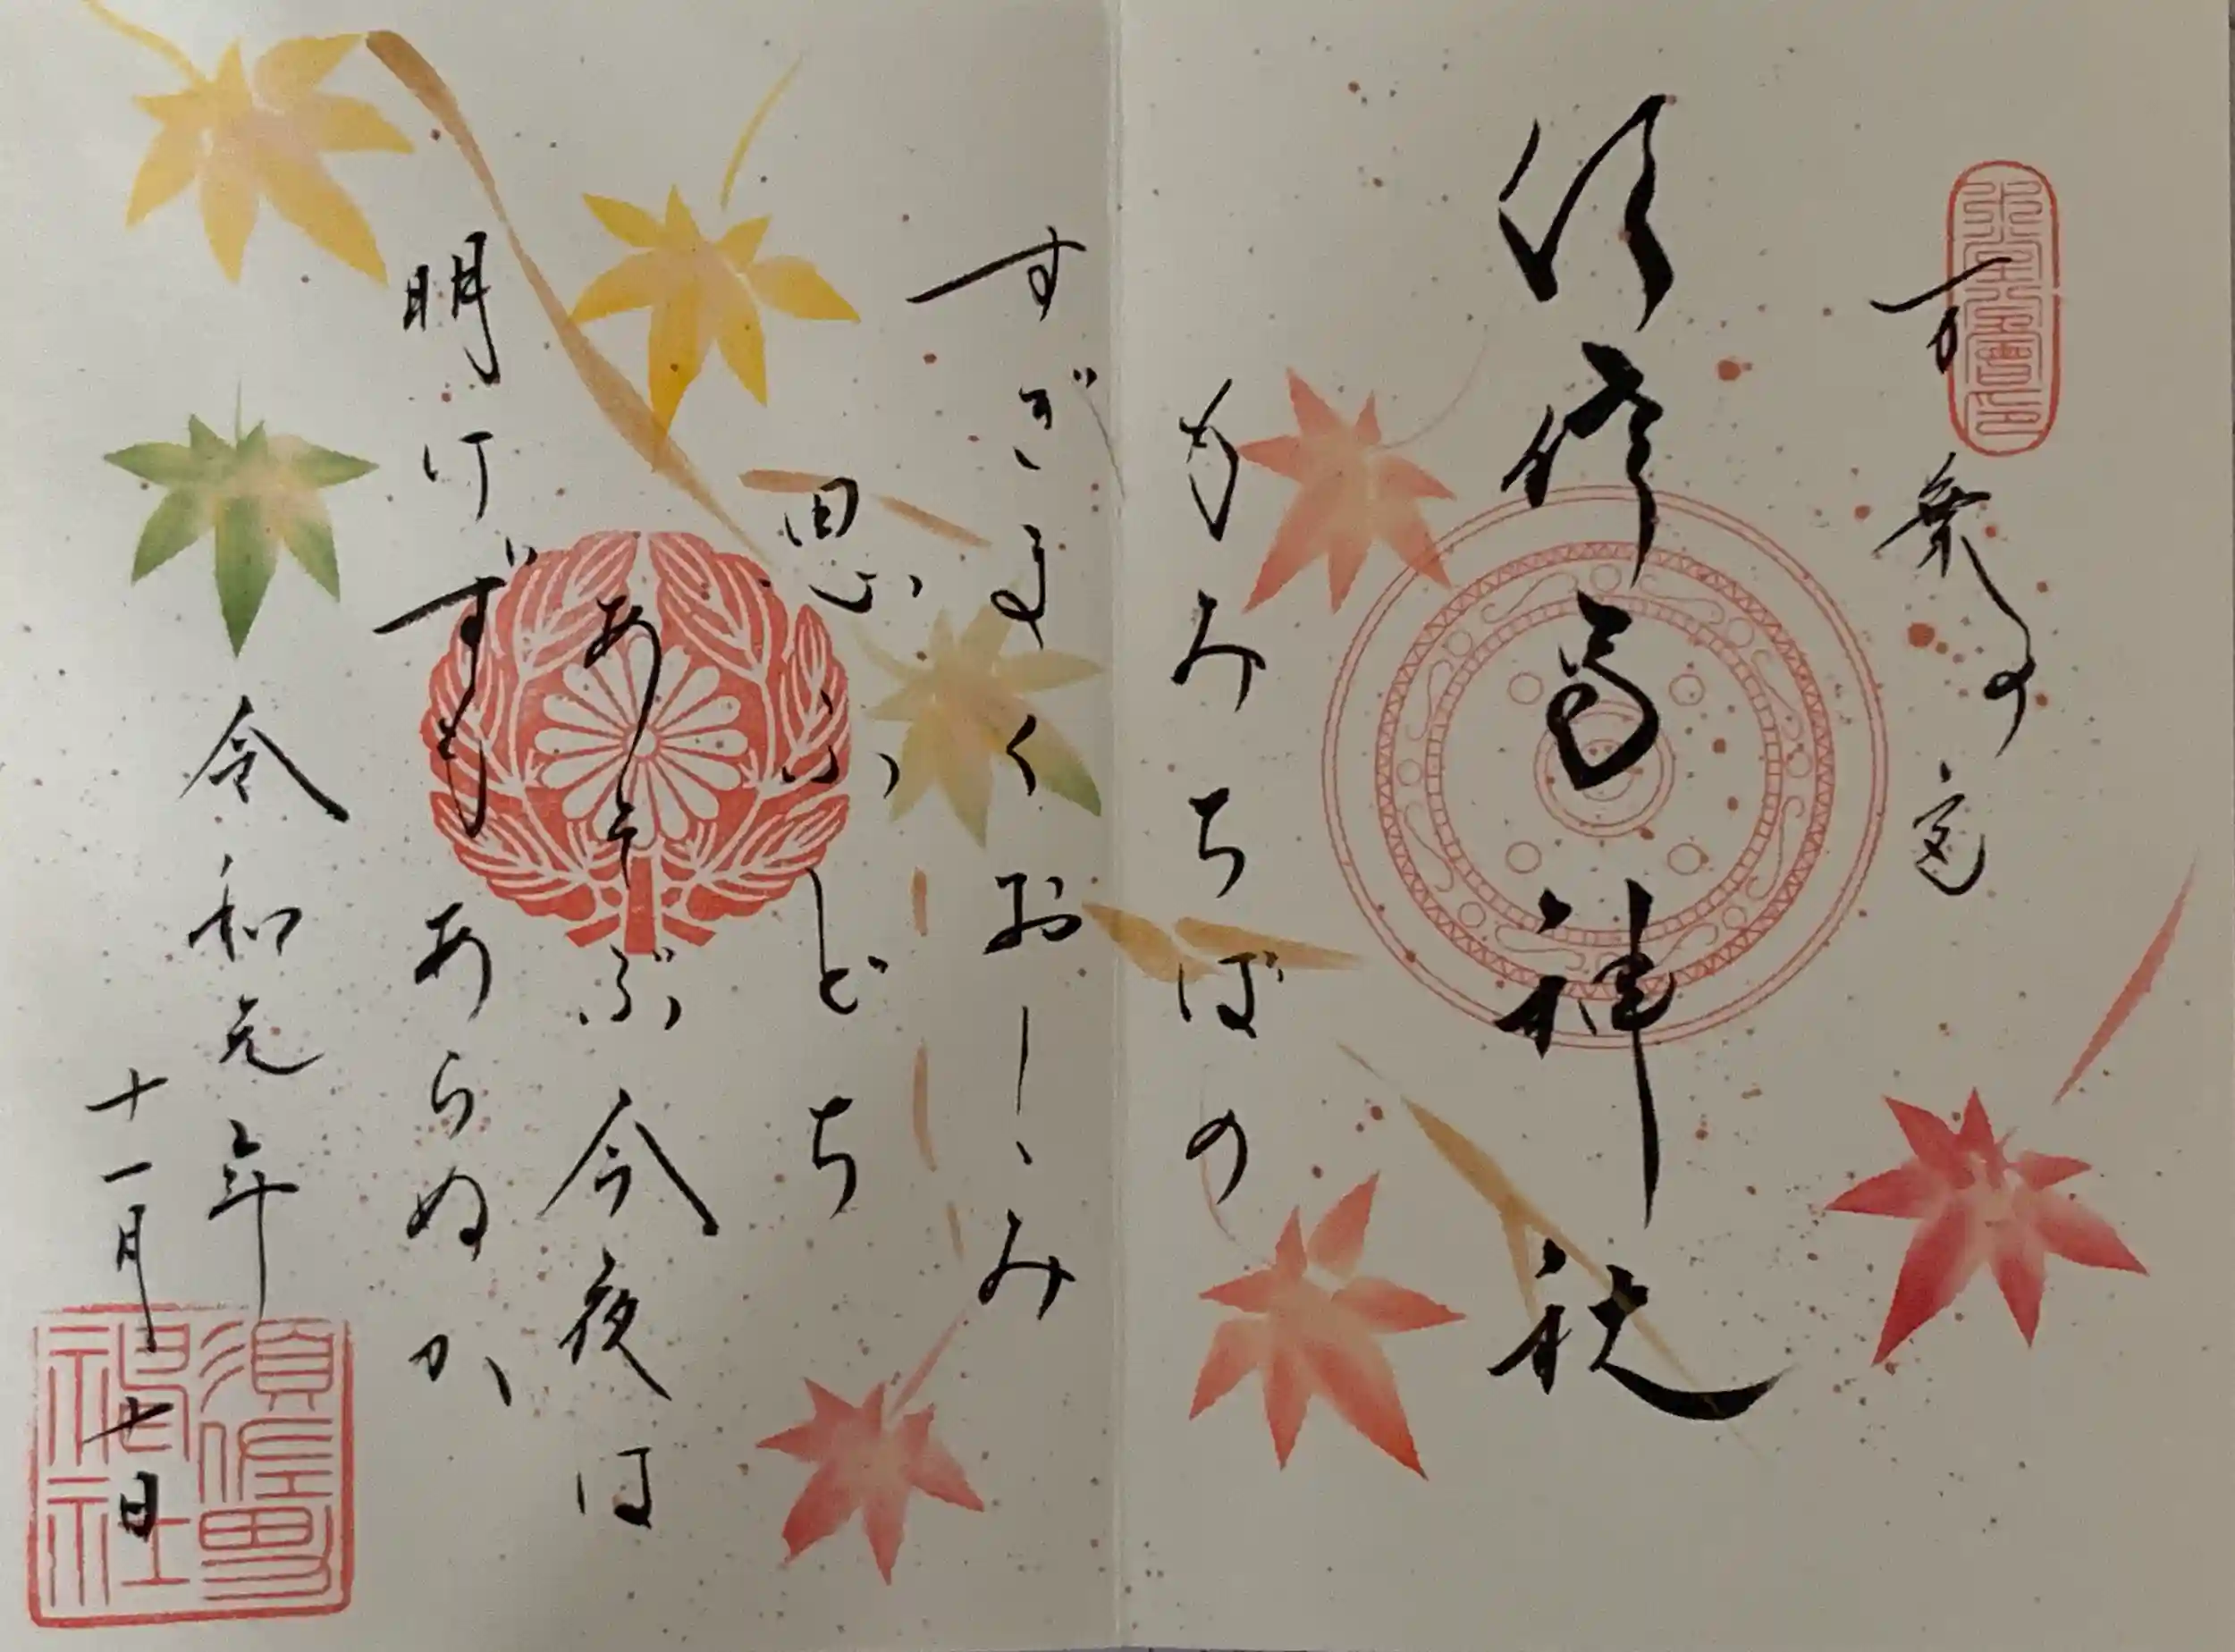 万葉の
須佐男神社
もみちばの
すぎまくおしみ
思ふどち
あそぶ今夜は
明けずもあらぬか
令和元年
十一月七日
須佐男
神社